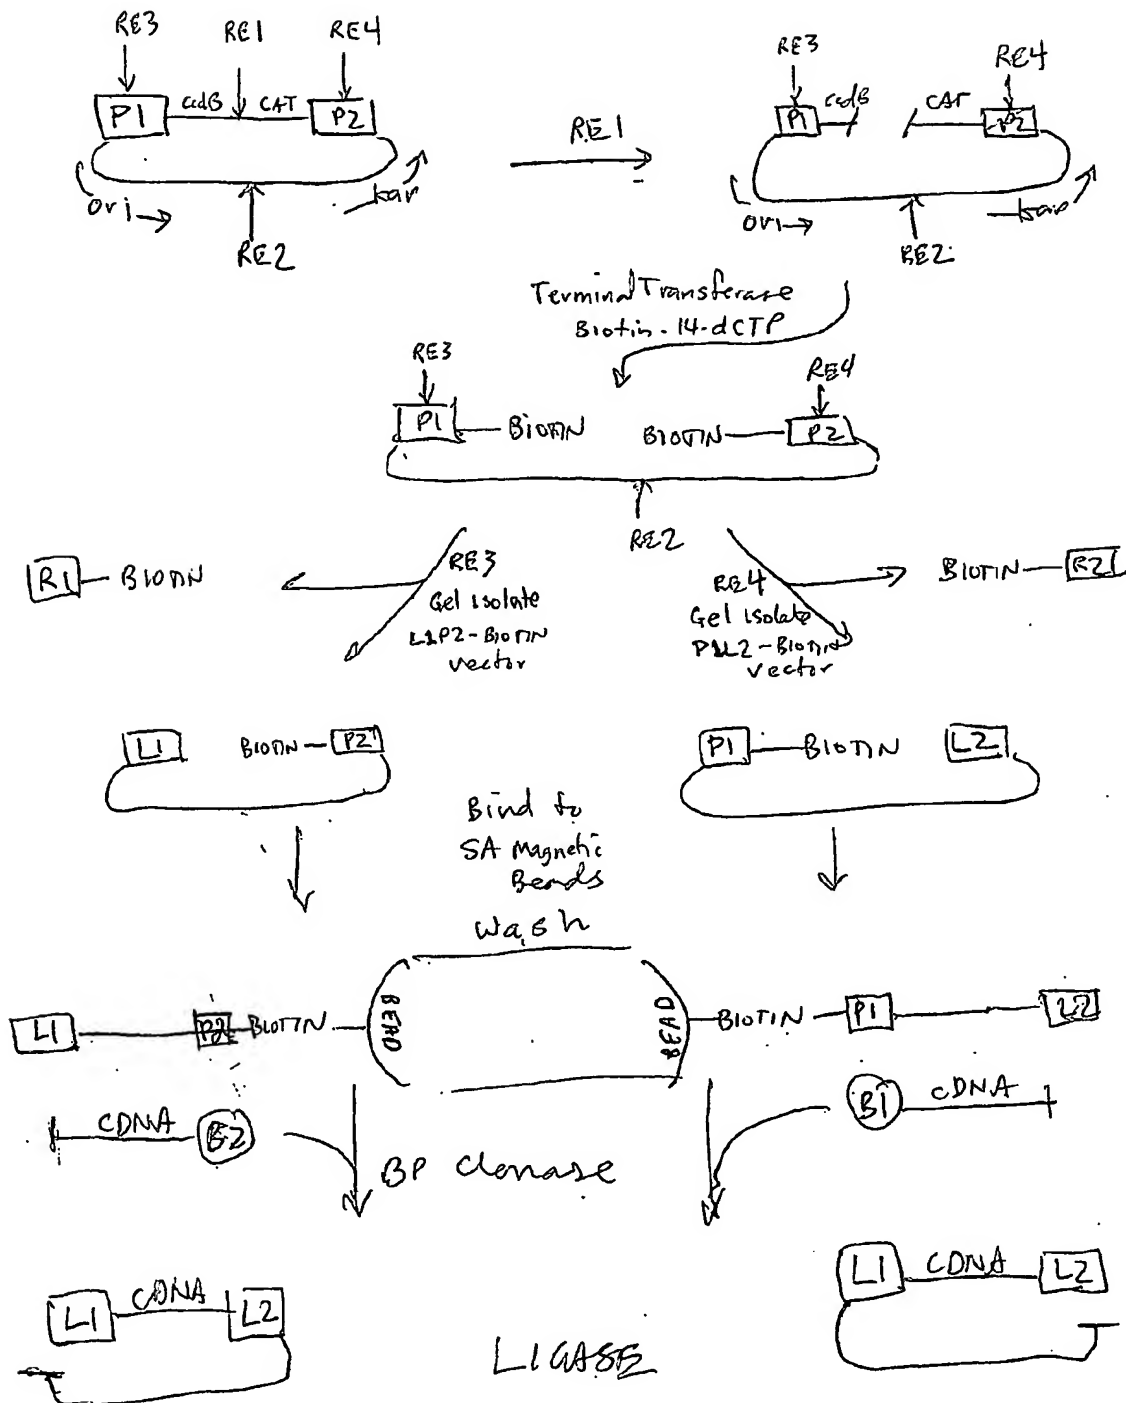 RE3 RE1 RE4
P1 ccdB CAT P2
ori kan
RE2
RE1
RE3 RE4
P1 ccdB CAT P2
ori kan
RE2
Terminal Transferase
Biotin-14-dCTP
RE3 RE4
P1 BIOTIN BIOTIN P2
RE2
R1 BIOTIN
RE3
Gel isolate
L1P2-BIOTIN
vector
RE4
Gel isolate
P1L2-BIOTIN
vector
BIOTIN R2
L1 BIOTIN P2
P1 BIOTIN L2
Bind to
SA Magnetic
Beads
Wash
L1 P2 BIOTIN BEAD
BEAD BIOTIN P1 L2
CDNA B2
B1 CDNA
BP Clonase
L1 CDNA L2
L1 CDNA L2
LIGASE